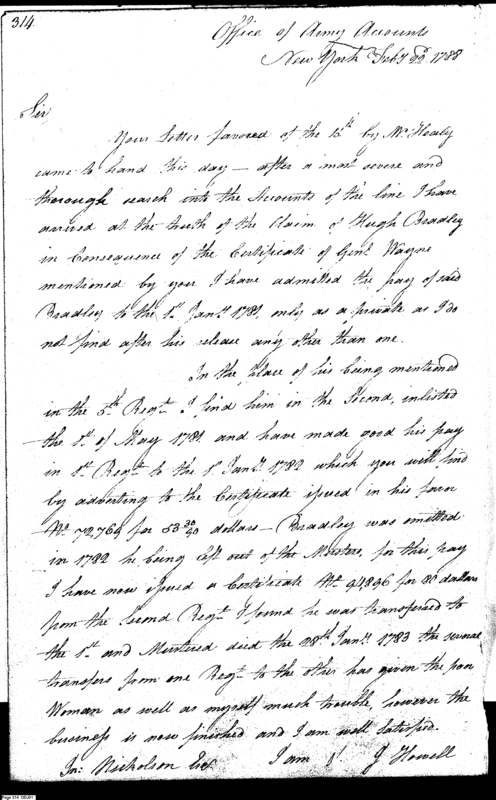 314.
Office of Army Accounts
New York Feby 22d. 1788
Sir
Your letter favored of the 15th by Mr. Healy
came to hand this day — after a most severe and
thorough search into the Accounts of the line I have
arrived at the truth of the Claim of Hugh Bradley
in Consequence of the Certificate of Genl. Wayne
mentioned by you I have admitted the pay of said
Bradley to the 1st. Jany. 1781, only as a private as I do
not find after his release any other than one.
In the place of his being mentioned
in the 5th. Regt. I find him in the Second, inlisted
the 1st. of May 1781 and have made good his pay
in 1st. Regt. to the 1st Jany. 1782 which you will find
by adverting to the Certificate issued in his favor
No. 72,764 for 53 30/90 dollars — Bradley was omitted
in 1782 he being left out of the Musters, for this pay
I have now issued a Certificate No. 94,896 for 80 dollars
from the Second Regt. I found he was transferred to
the 1st. and Mustered died the 28th. Jany. 1783 the several
transfers from one Regt. to the other has given the poor
Woman as well as myself much trouble, however the
business is now finished and I am well satisfied.
I am &c. J Howell
Jn: Nicholson Esqr.
Page 314